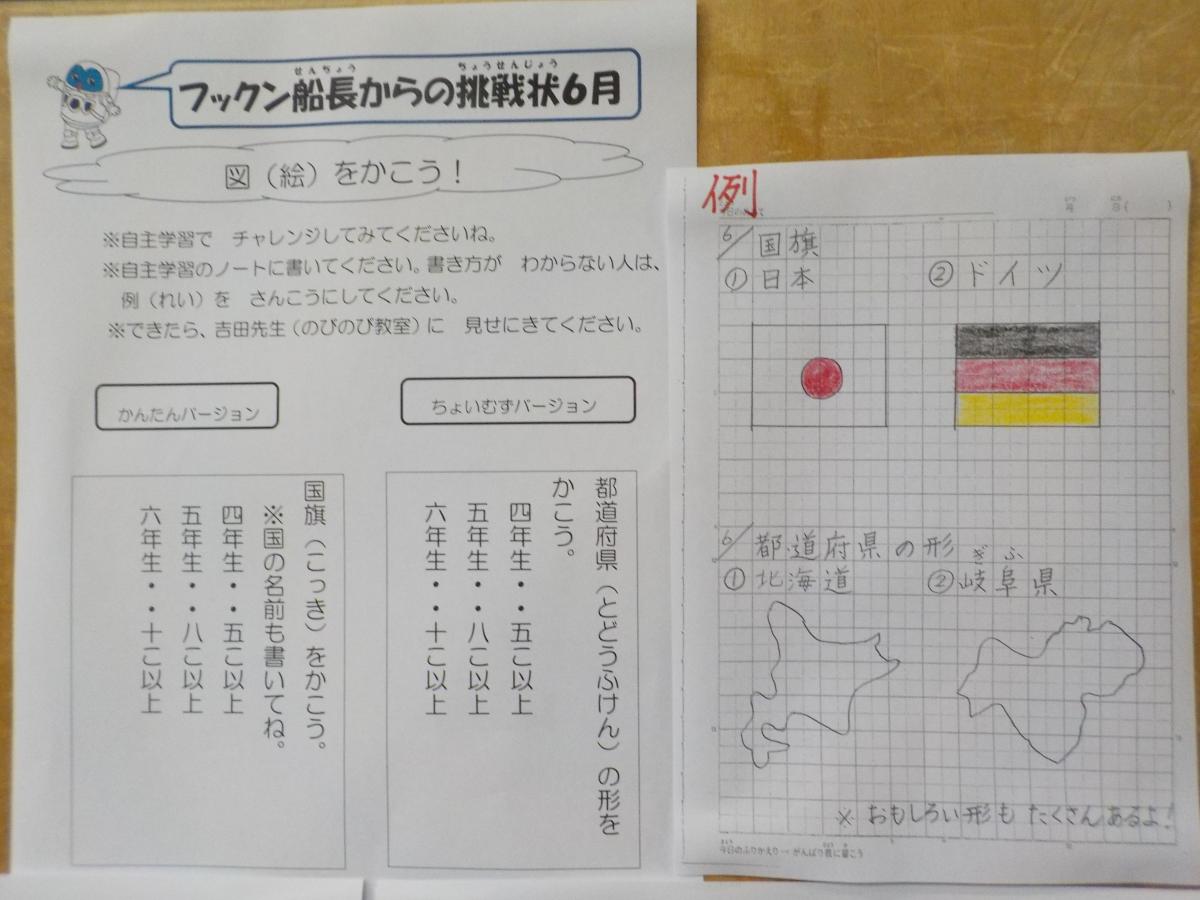 せんちょう ちょうせんじょう
フックン船長からの挑戦状6月
図（絵）をかこう！
※自主学習で　チャレンジしてみてくださいね。
※自主学習のノートに書いてください。書き方が　わからない人は、
例（れい）を　さんこうにしてください。
※できたら、吉田先生（のびのび教室）に　見せにきてください。
かんたんバージョン
国旗（こっき）をかこう。
※国の名前も書いてね。
四年生・・五こ以上
五年生・・八こ以上
六年生・・十こ以上
ちょいむずバージョン
都道府県（とどうふけん）の形を
かこう。
四年生・・五こ以上
五年生・・八こ以上
六年生・・十こ以上
例
6/ 国旗
①日本 ②ドイツ
6/ 都道府県の形
ぎふ
①北海道 ②岐阜県
※ おもしろい形も たくさんあるよ!
今日のふりかえり